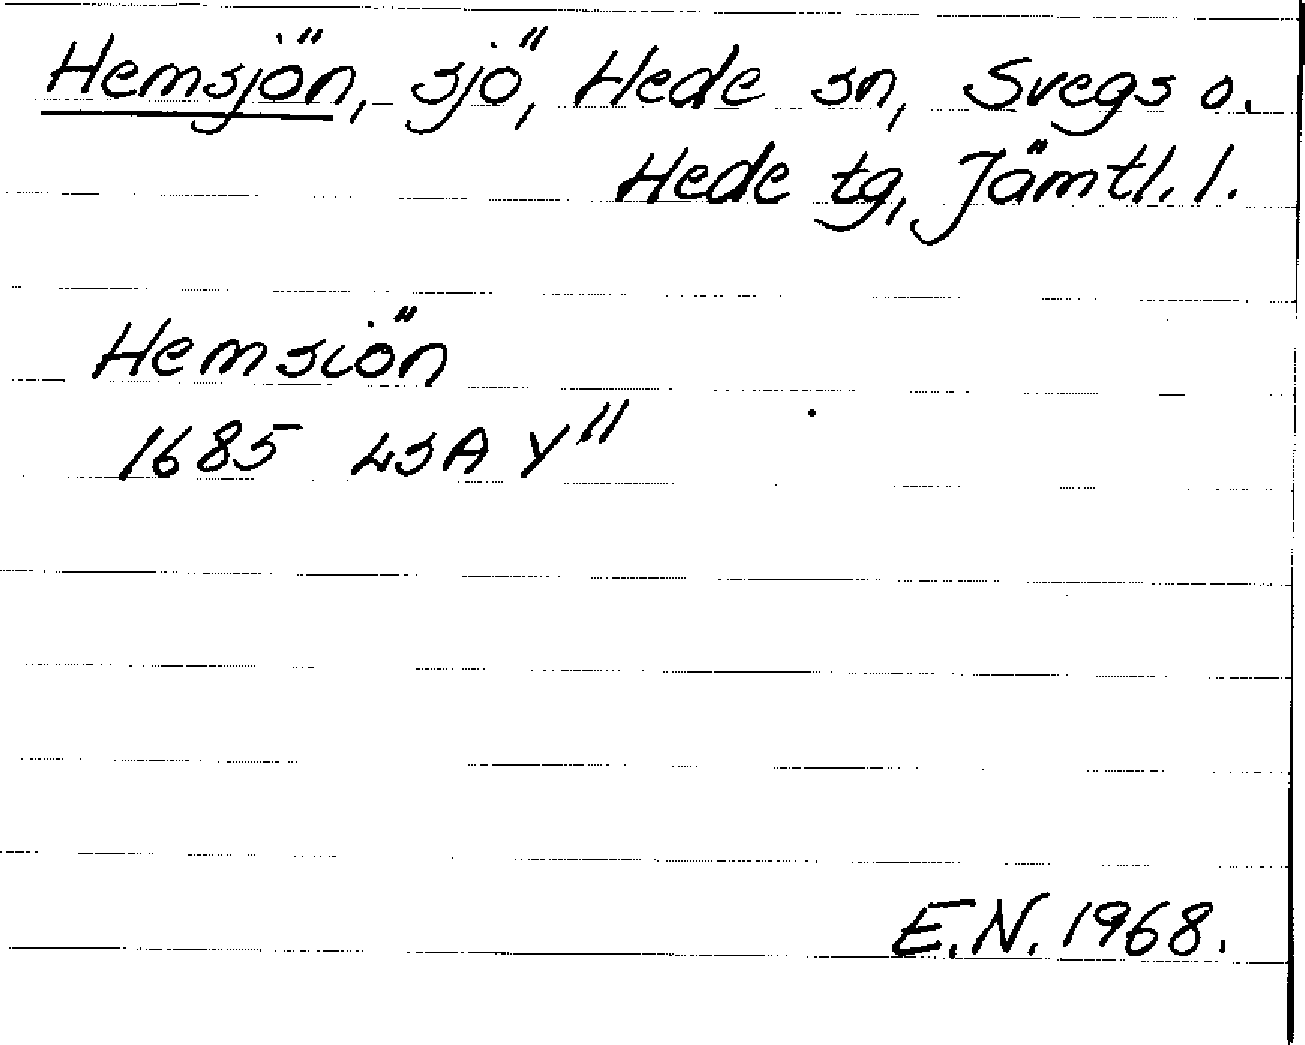 Hemsjön, sjö, Hede sn, Svegs o.
Hede tg, Jämtl. l.
Hemsiön
1685 LSA Y"
E.N. 1968.